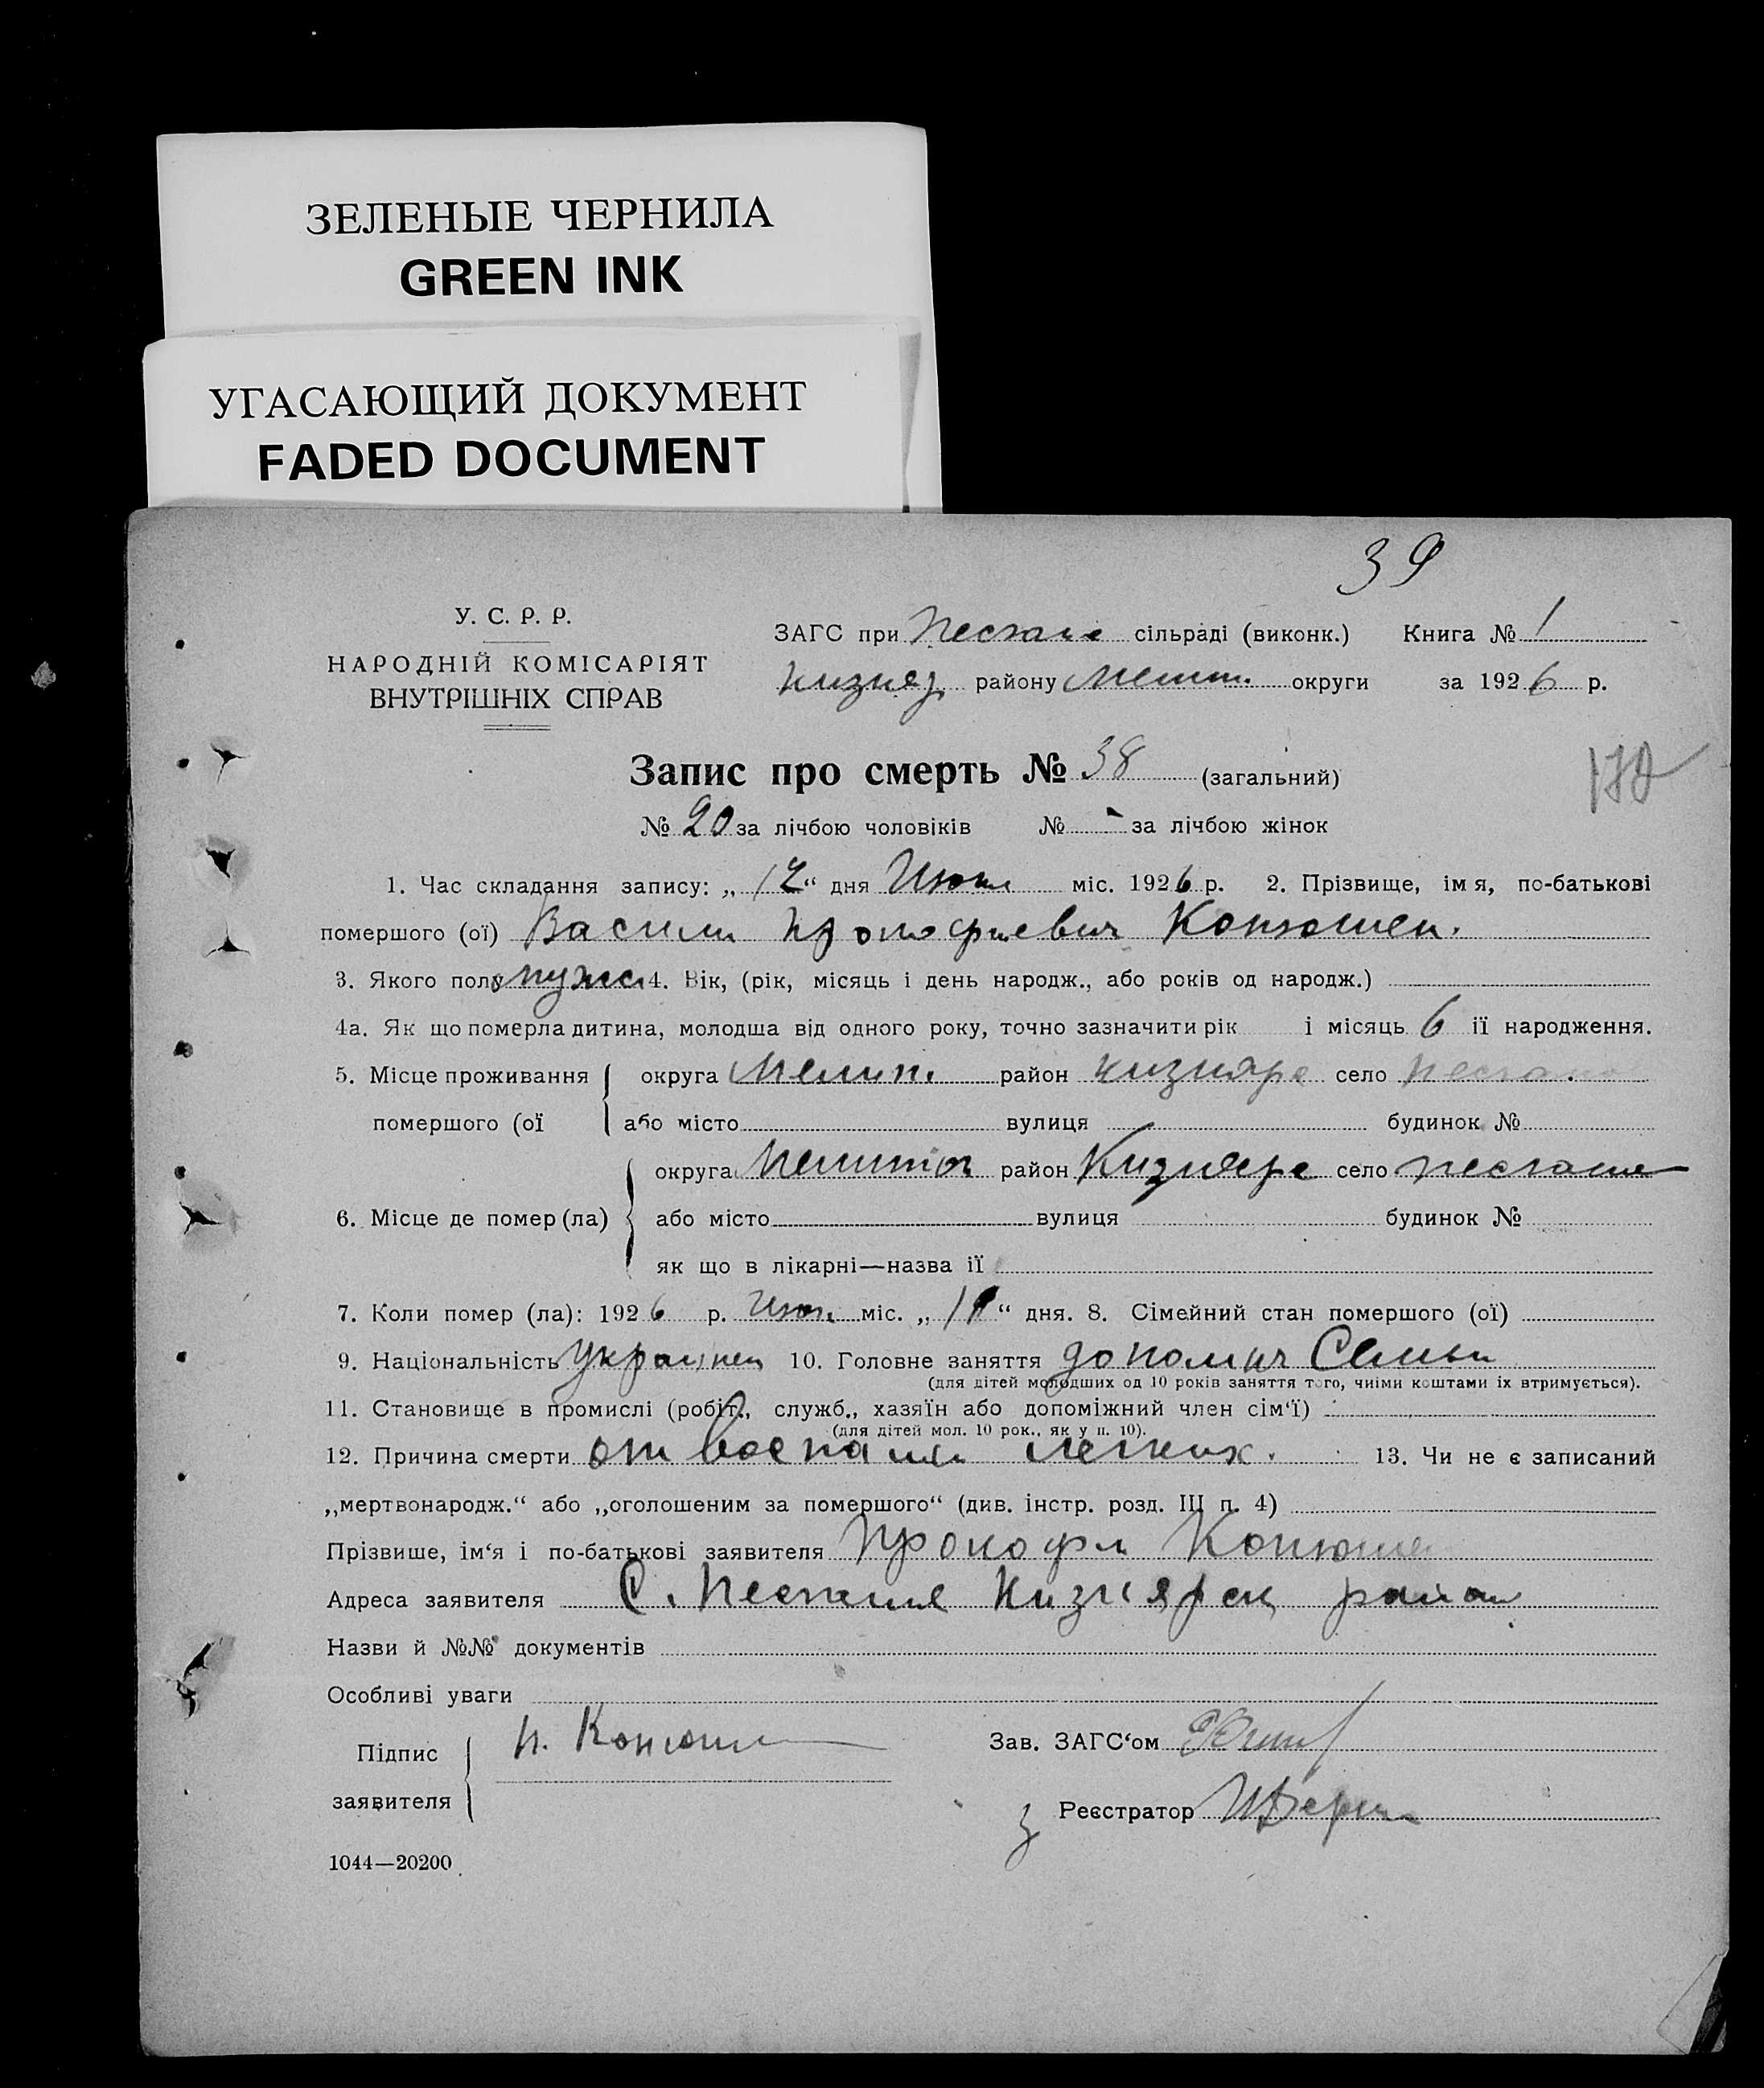 ЗЕЛЕНЫЕ ЧЕРНИЛА
GREEN INK
УГАСАЮЩИЙ ДОКУМЕНТ
FADED DOCUMENT
39
У. С. Р. Р.
НАРОДНІЙ КОМІСАРІЯТ
ВНУТРІШНІХ СПРАВ
ЗАГС при сільраді (виконк.) Книга № 1
району Мелит. округи за 1926 р.
Запис про смерть № 38 (загальний)
№ 20 за лічбою чоловіків № - за лічбою жінок
1. Час складання запису: „12“ дня міс. 1926 р. 2. Прізвище, імя, по-батькові
помершого (ої) Васили Прокофиевич
3. Якого полу мужс 4. Вік, (рік, місяць і день народж., або років од народж.)
4а. Як що померла дитина, молодша від одного року, точно зазначити рік і місяць 6 ії народження.
5. Місце проживання помершого (ої
округа Мелит. район село
або місто вулиця будинок №
6. Місце де помер (ла)
округа Мелитоп район село
або місто вулиця будинок №
як що в лікарні—назва ії
7. Коли помер (ла): 1926 р. міс. „ “ дня. 8. Сімейний стан помершого (ої)
9. Національність украинец 10. Головне заняття допомич Семьи
(для дітей молодших од 10 років заняття того, чиїми коштами їх втримується).
11. Становище в промислі (робіт., служб., хазяїн або допоміжний член сім'ї)
(для дітей мол. 10 рок., як у п. 10).
12. Причина смерти от воспален легких. 13. Чи не є записаний
„мертвонародж.“ або „оголошеним за помершого“ (див. інстр. розд. III п. 4)
Прізвише, ім'я і по-батькові заявителя Прокофи Конюше
Адреса заявителя С. район
Назви й №№ документів
Особливі уваги
Підпис заявителя П.
Зав. ЗАГС'ом
Реєстратор
1044—20200